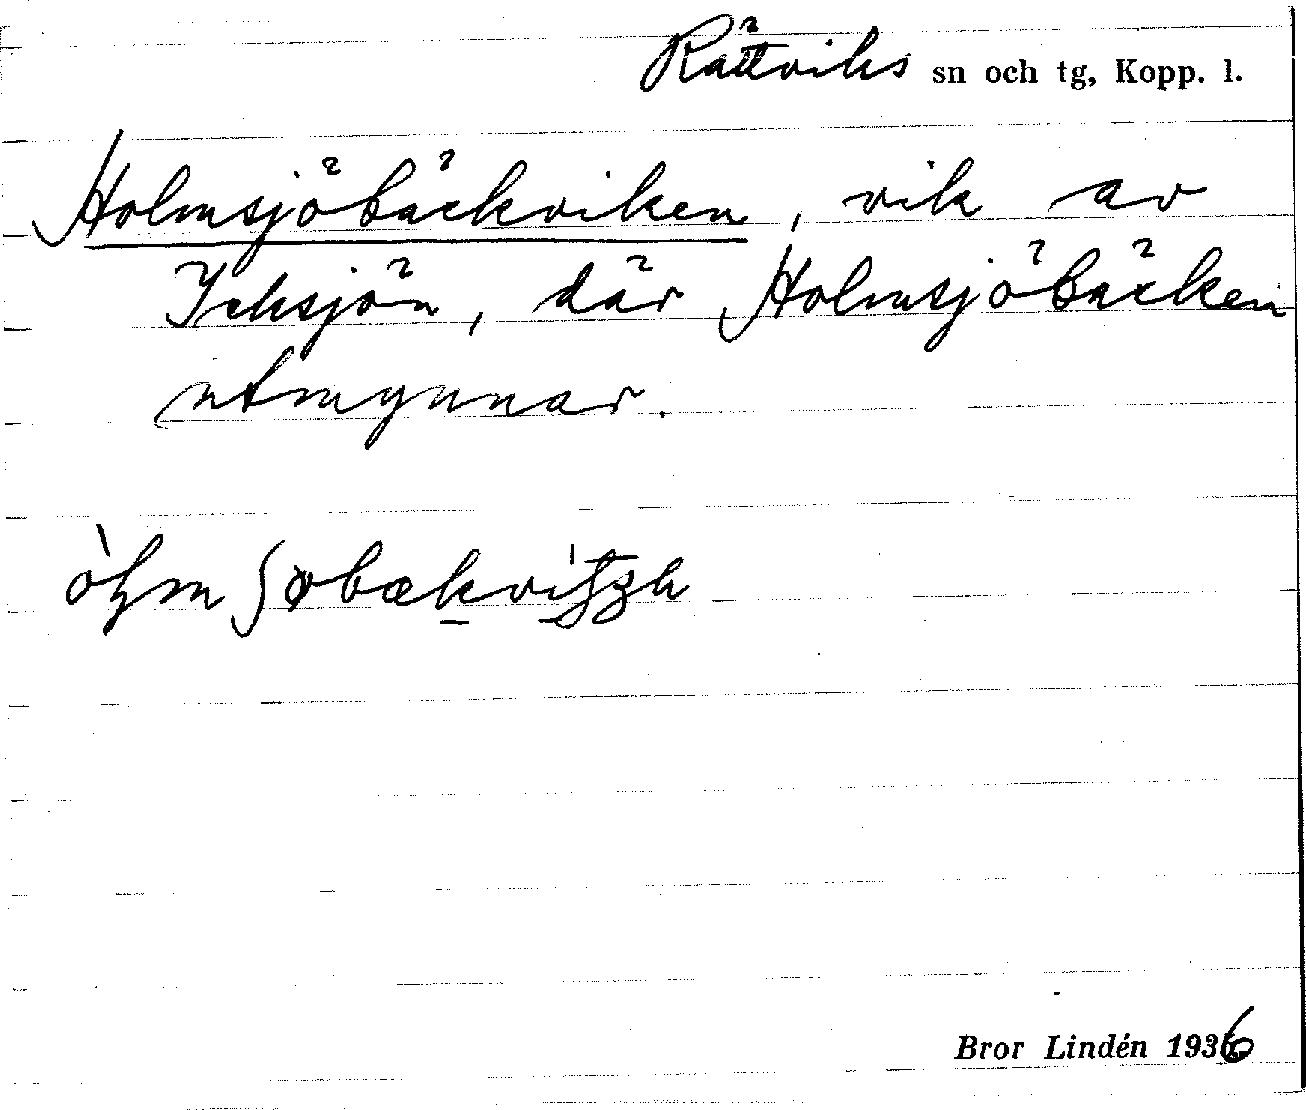 Rättviks sn och tg, Kopp. l.
Holmsjöbäckviken, vik av
Icksjön, där Holmsjöbäcken
utmynnar.
Bror Lindén 1936